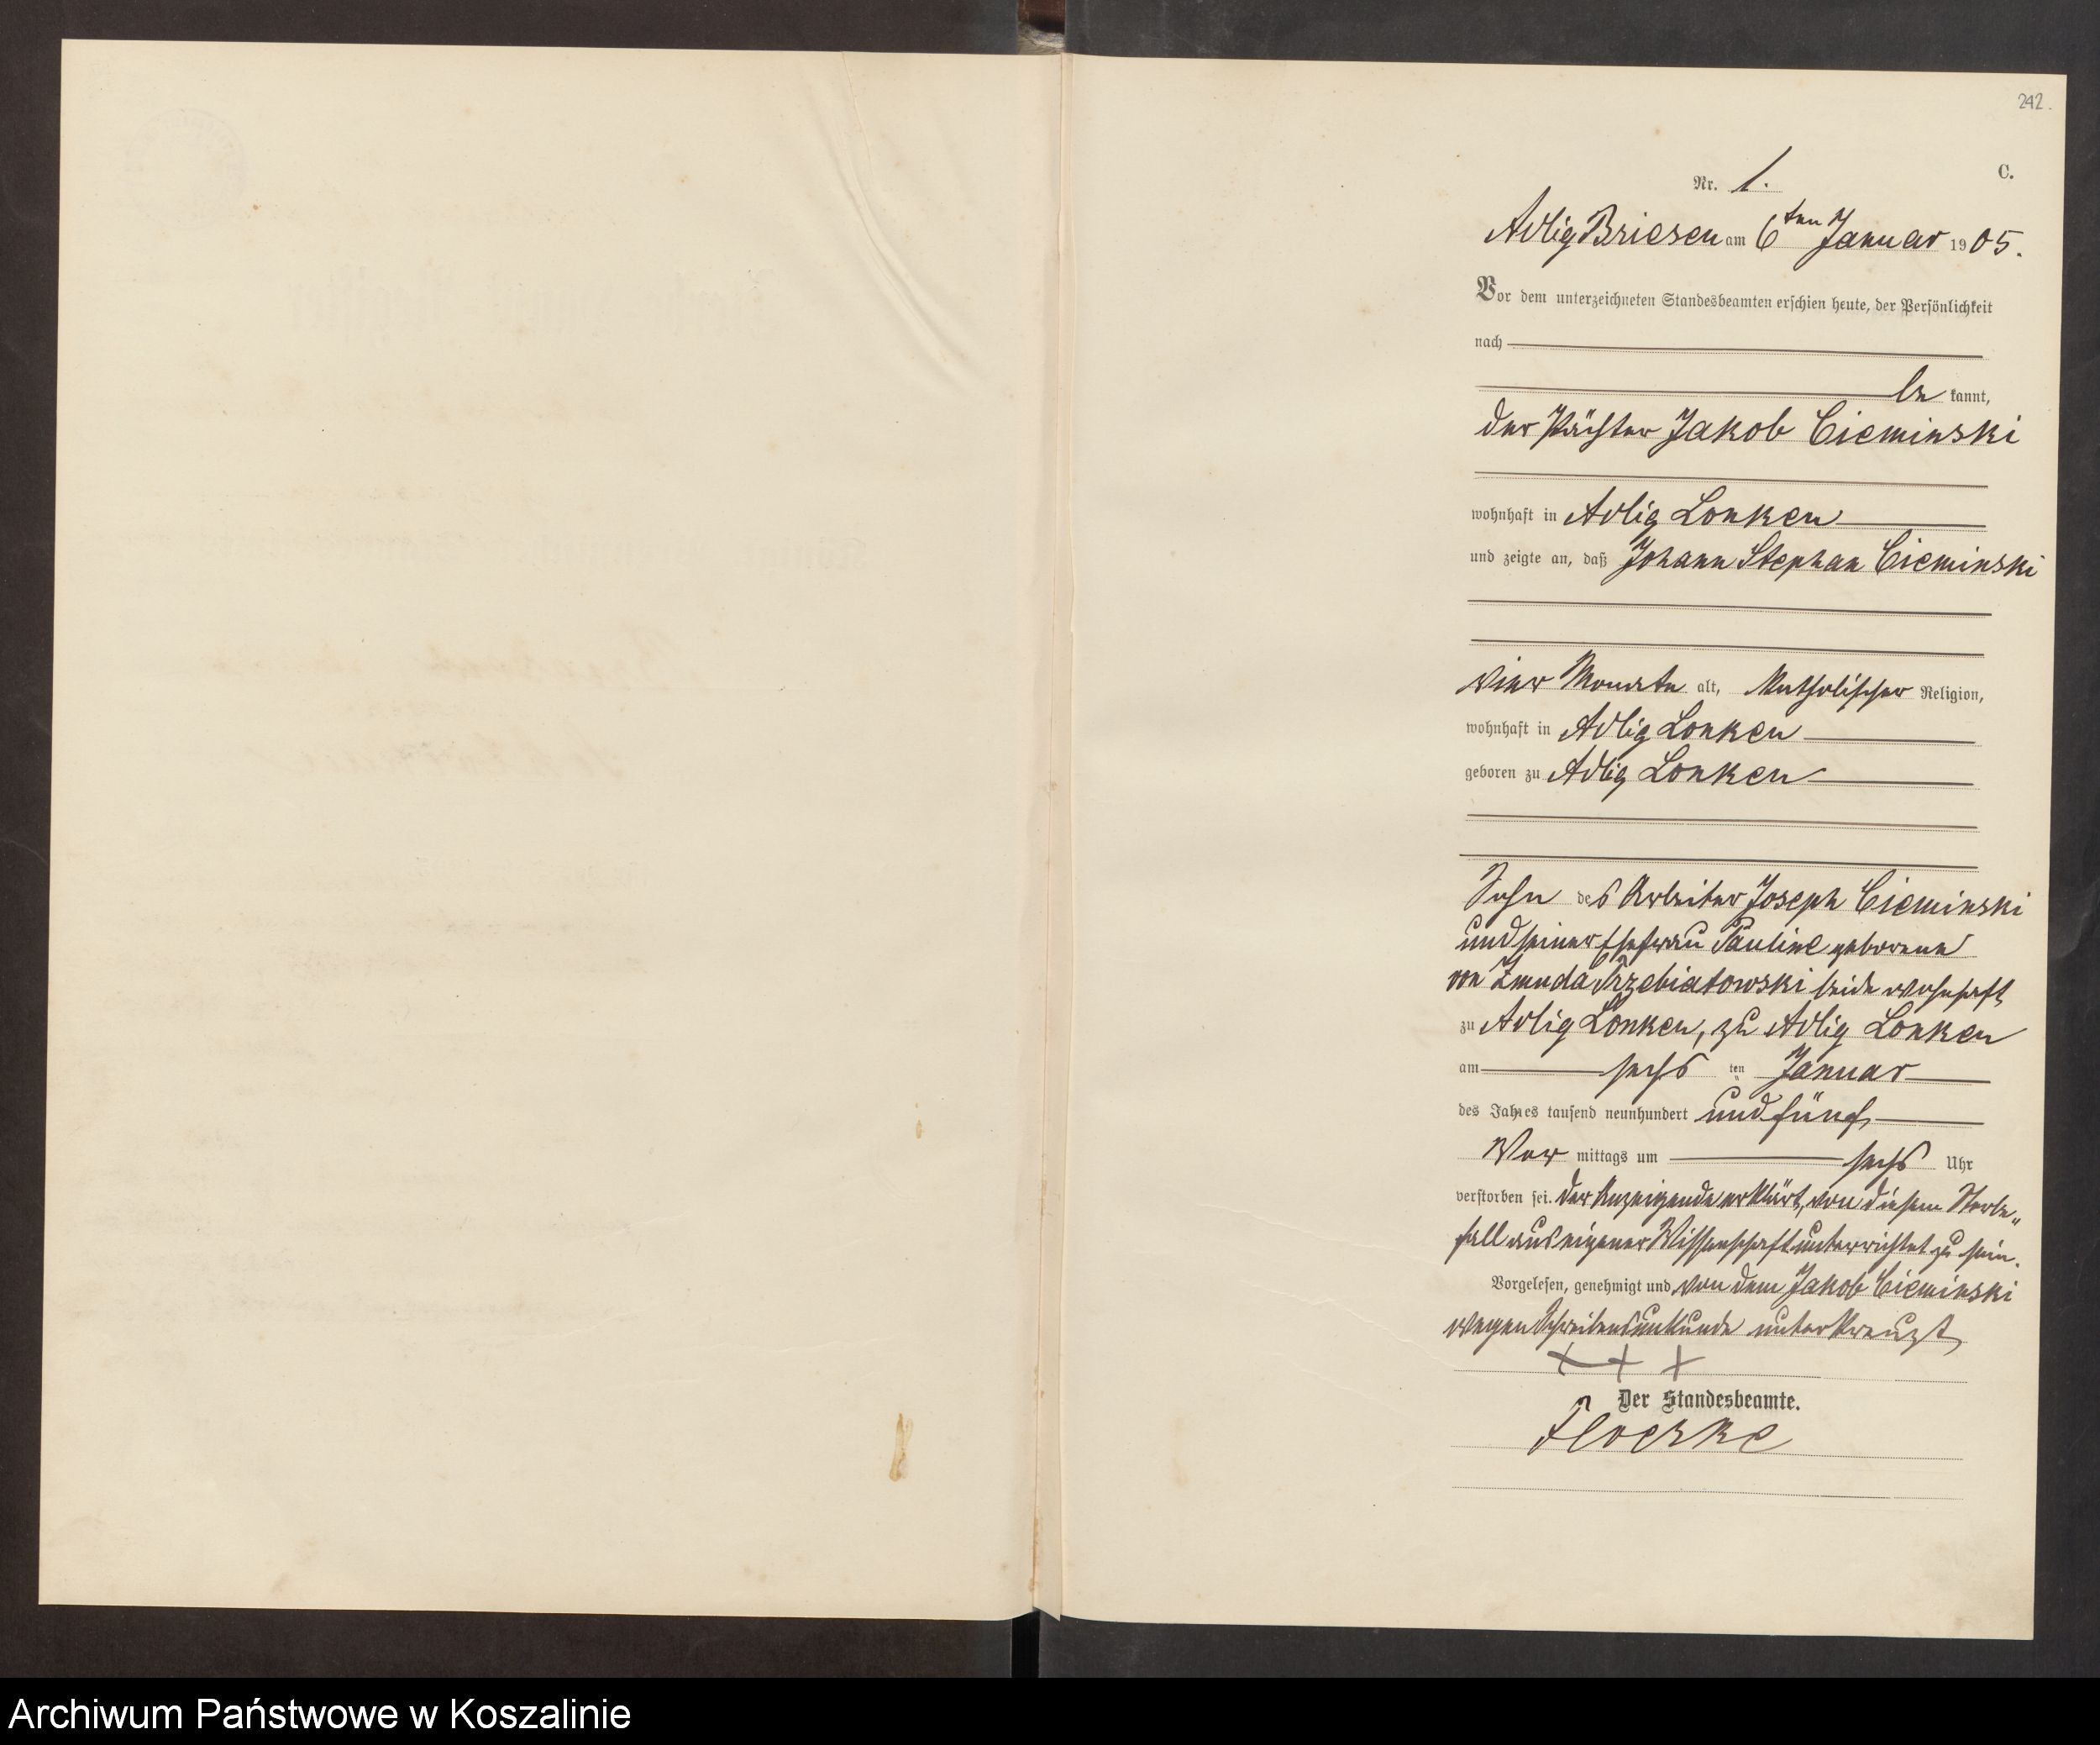 242.
C.
Nr. 1.
Adlig Briesen am 6ten Januar 1905.
Vor dem unterzeichneten Standesbeamten erschien heute, der Persönlichkeit
nach
be kannt,
der Pächter Jakob Cieminski
wohnhaft in Adlig Lonken
und zeigte an, daß Johann Stephan Cieminski
vier Monate alt, katholischer Religion,
wohnhaft in Adlig Lonken
geboren zu Adlig Lonken
Sohn des Arbeiter Joseph Cieminski
und seiner Ehefrau Pauline geborene
von Zmuda Trzebiatowski beide wohnhaft
zu Adlig Lonken, zu Adlig Lonken
am sechs ten Januar
des Jahres tausend neunhundert und fünf
Vor mittags um sechs Uhr
verstorben sei. Der Anzeigende erklärt, von diesem Sterbe„
fall aus eigener Wissenschaft unterrichtet zu sein.
Vorgelesen, genehmigt und von dem Jakob Cieminski
wegen Schreibensunkunde unterkreuzt
+ + +
Der Standesbeamte.
Floerke
Archiwum Państwowe w Koszalinie